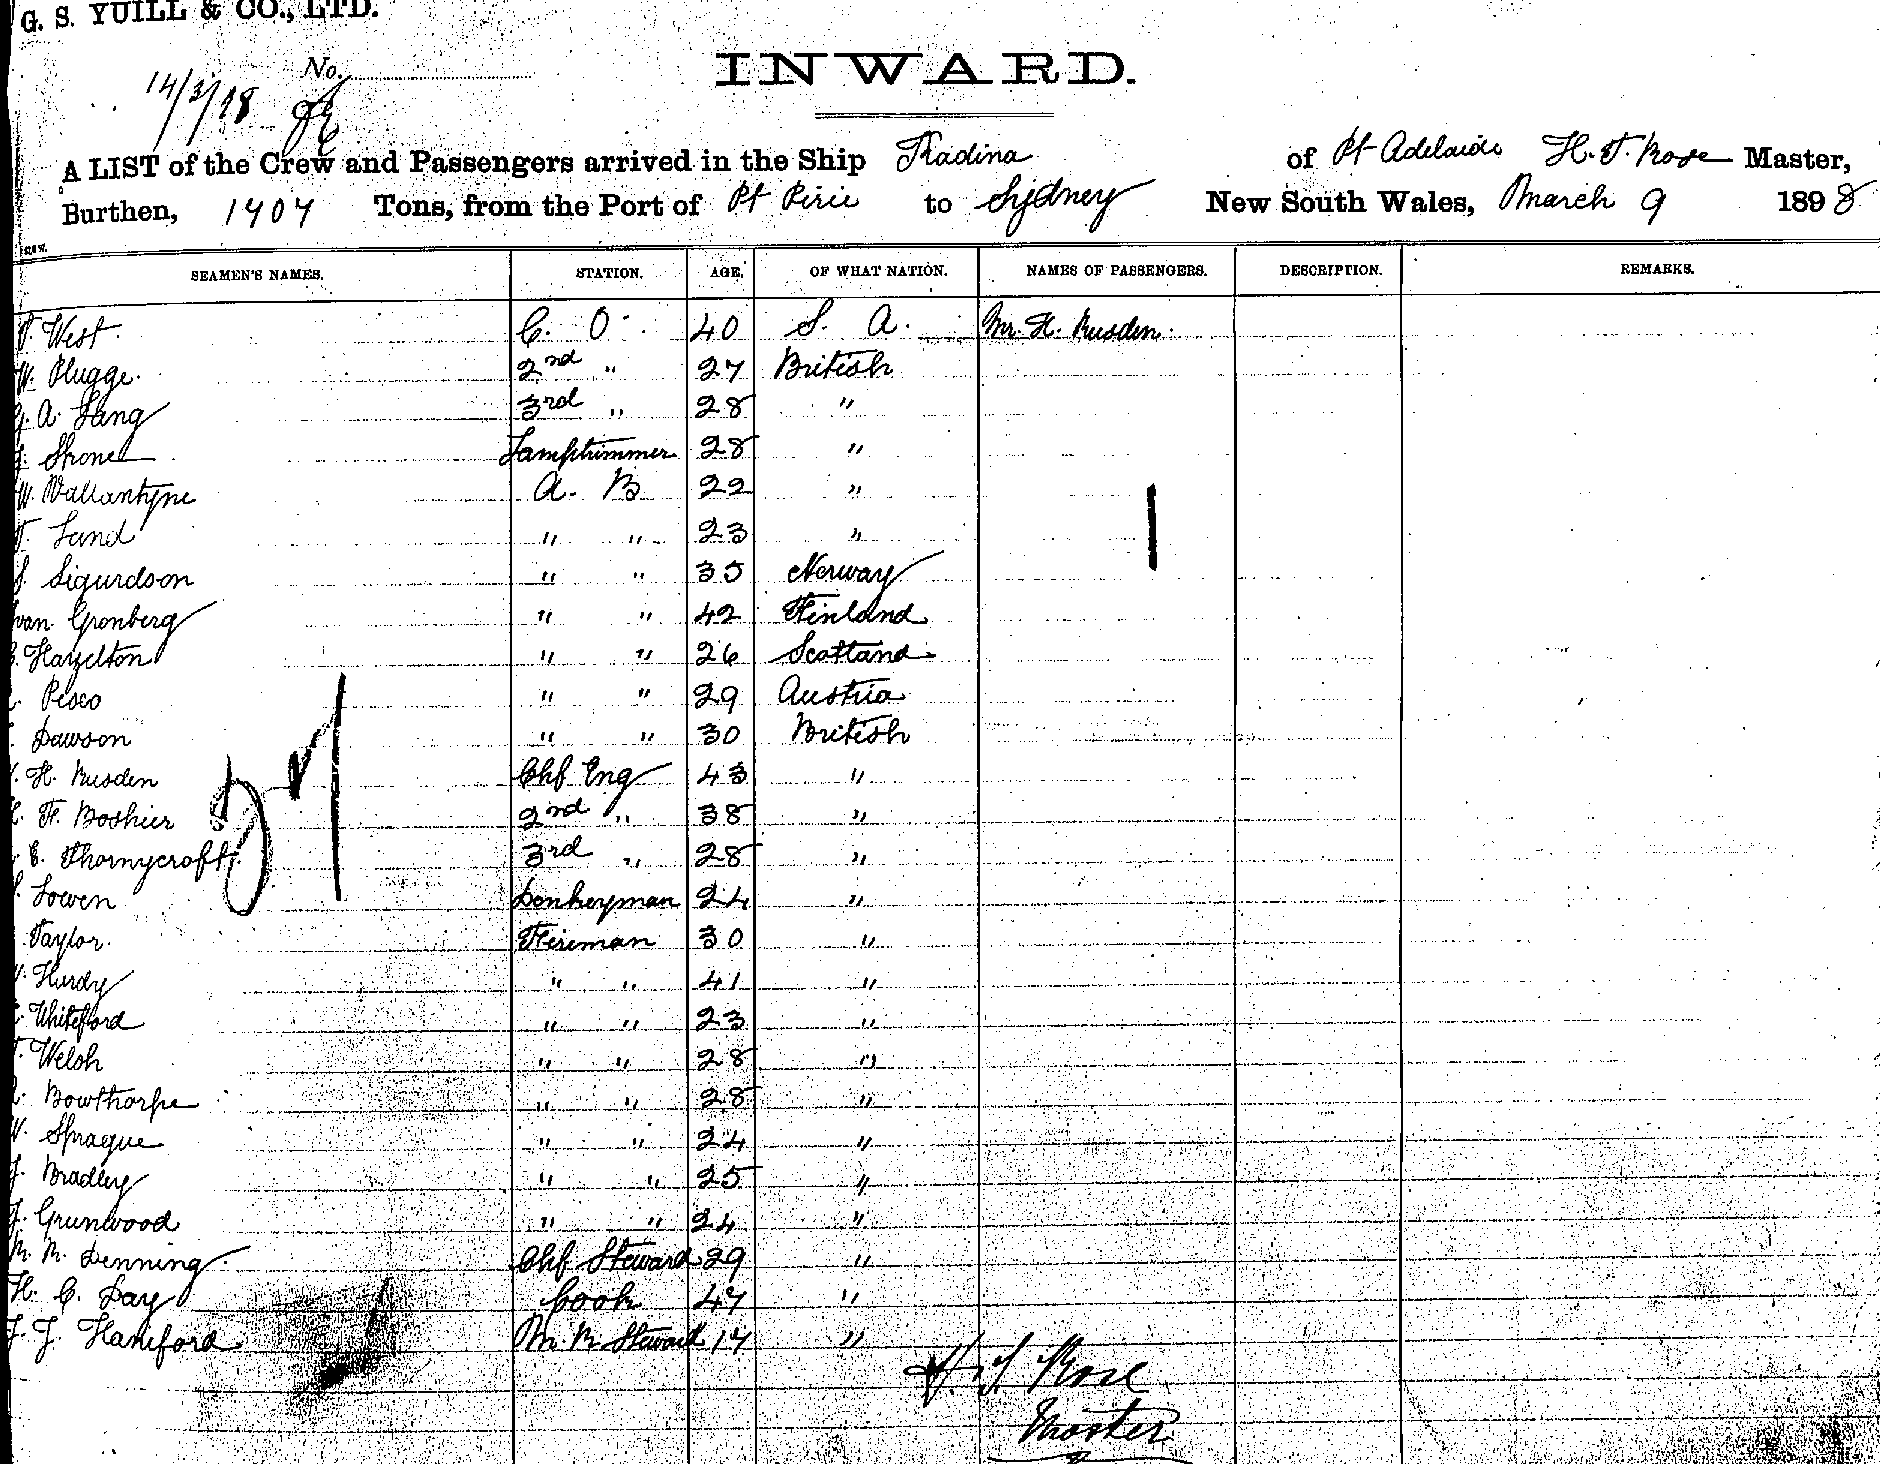 G. S. YUILL & CO., LTD.
No.
14/3/98
INWARD.
A LIST of the Crew and Passengers arrived in the Ship Kadina of Pt Adelaide H. T. Rose Master,
Burthen, 1707 Tons, from the Port of Pt Pirie to Sydney New South Wales, March 9 1898
SEAMEN'S NAMES. STATION. AGE. OF WHAT NATION. NAMES OF PASSENGERS. DESCRIPTION. REMARKS.
West. C. O. 40 S. A. Mr. H. Rusden.
W. Plugge. 2nd " 27 British
A. Lang 3rd " 28 "
Shone Lamptrimmer 28 "
W. Vallantyne A. B 22 "
T. Land " " 23 "
S. Sigurdson " " 35 Norway
Gronberg " " 42 Finland
Hazelton " " 26 Scotland
Pesco " " 29 Austria
Dawson " " 30 British
H. Rusden Chf Eng 43 "
F. Boshier 2nd " 38 "
C. Thornycroft. 3rd " 28 "
Lowen Donkeyman 24 "
Taylor. Fireman 30 "
Hurdy " " 41 "
Whiteford " " 23 "
Welsh " " 28 "
Bowthorpe " " 28 "
W. Sprague " " 24 "
J. Bradley " " 25 "
J. Grunwood " " 24 "
M. M. Denning. Chf Steward 29 "
H. C. Day Cook 47 "
J. J. Haniford M. R. Steward 17 "
27
1
H. T. Rose
Master